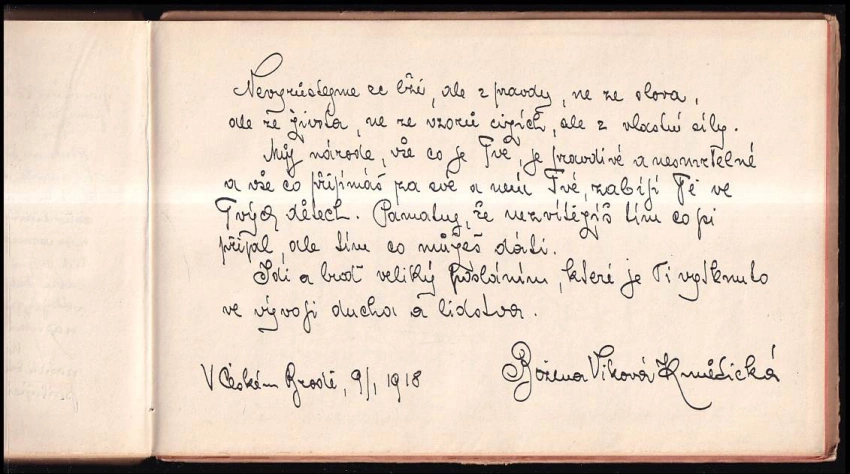 Nevyrůstejme ze lži, ale z pravdy, ne ze slova,
ale ze života, ne ze vzorů cizích, ale z vlastní síly.
Můj národe, vše co je Tvé, je pravdivé a nesmrtelné
a vše co přijímáš za své a není Tvé, zabíjí Tě ve
Tvých dětech. Pamatuj, že nezvítězíš tím co jsi
přijal, ale tím co můžeš dáti.
Jdi a buď veliký posláním, které je Ti vytknuto
ve vývoji ducha a lidstva.
V Českém Brodě, 9/1 1918
Božena Viková Kunětická